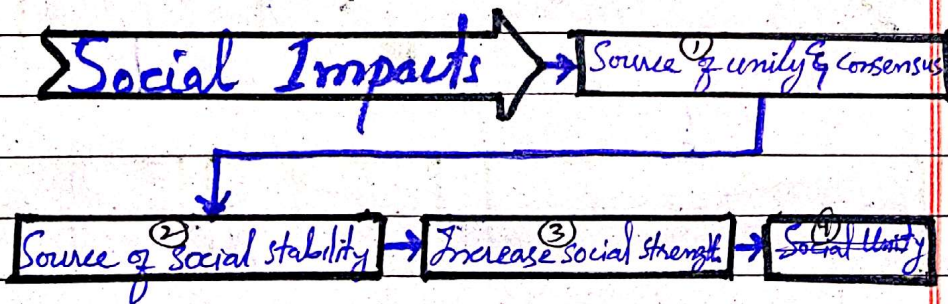 Social Impacts
① Source of unity & consensus
② Source of social stability
③ Increase social strength
④ Social Unity